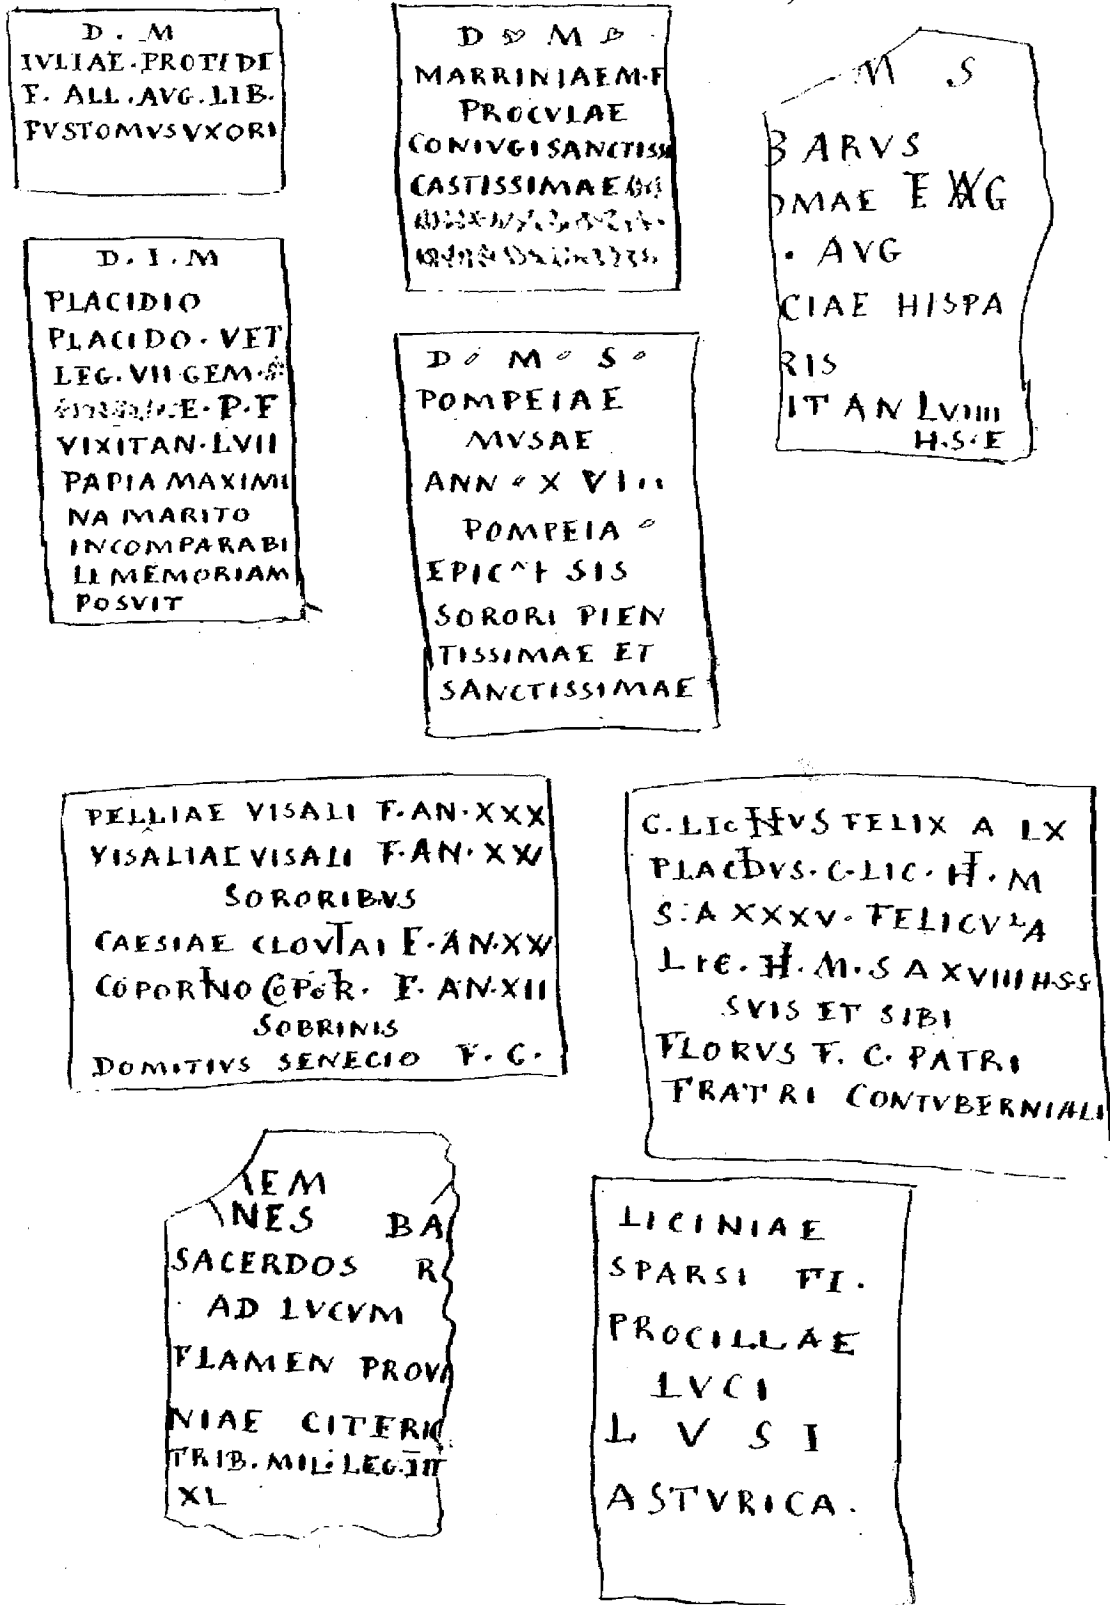 D. M
IVLIAE. PROTIDI
F. ALL. AVG. LIB.
FVSTOMVS VXORI
D. I. M
PLACIDIO
PLACIDO. VET
LEG. VII GEM.
E. P. F
VIXIT AN. LVII
PAPIA MAXIMI
NA MARITO
INCOMPARABI
LI MEMORIAM
POSVIT
D M
MARRINIAE M. F
PROCVLAE
CONIVGI SANCTISSI
CASTISSIMAE
D M S
POMPEIAE
MVSAE
ANN X VIII
POMPEIA
SIS
SORORI PIEN
TISSIMAE ET
SANCTISSIMAE
M S
BARVS
OMAE ET AVG
. AVG
CIAE HISPA
RIS
IT AN LVIIII
H. S. E
PELLIAE VISALI F. AN. XXX
VISALIAE VISALI F. AN. XXV
SORORIBVS
CAESIAE CLOVTAI F. AN. XXV
F. AN. XII
SOBRINIS
DOMITIVS SENECIO F. C.
FELIX A LX
C. LIC. M
S. A XXXV. FELICVLA
LIC. H. M. S A XVIIII H.S.S
SVIS ET SIBI
FLORVS F. C. PATRI
FRATRI CONTVBERNIALI
EM
NES BA
SACERDOS R
AD LVCVM
FLAMEN PROVI
NIAE CITERIO
TRIB. MIL. LEG. III
XL
LICINIAE
SPARSI FI.
PROCILLAE
LVCI
L V S I
ASTVRICA.